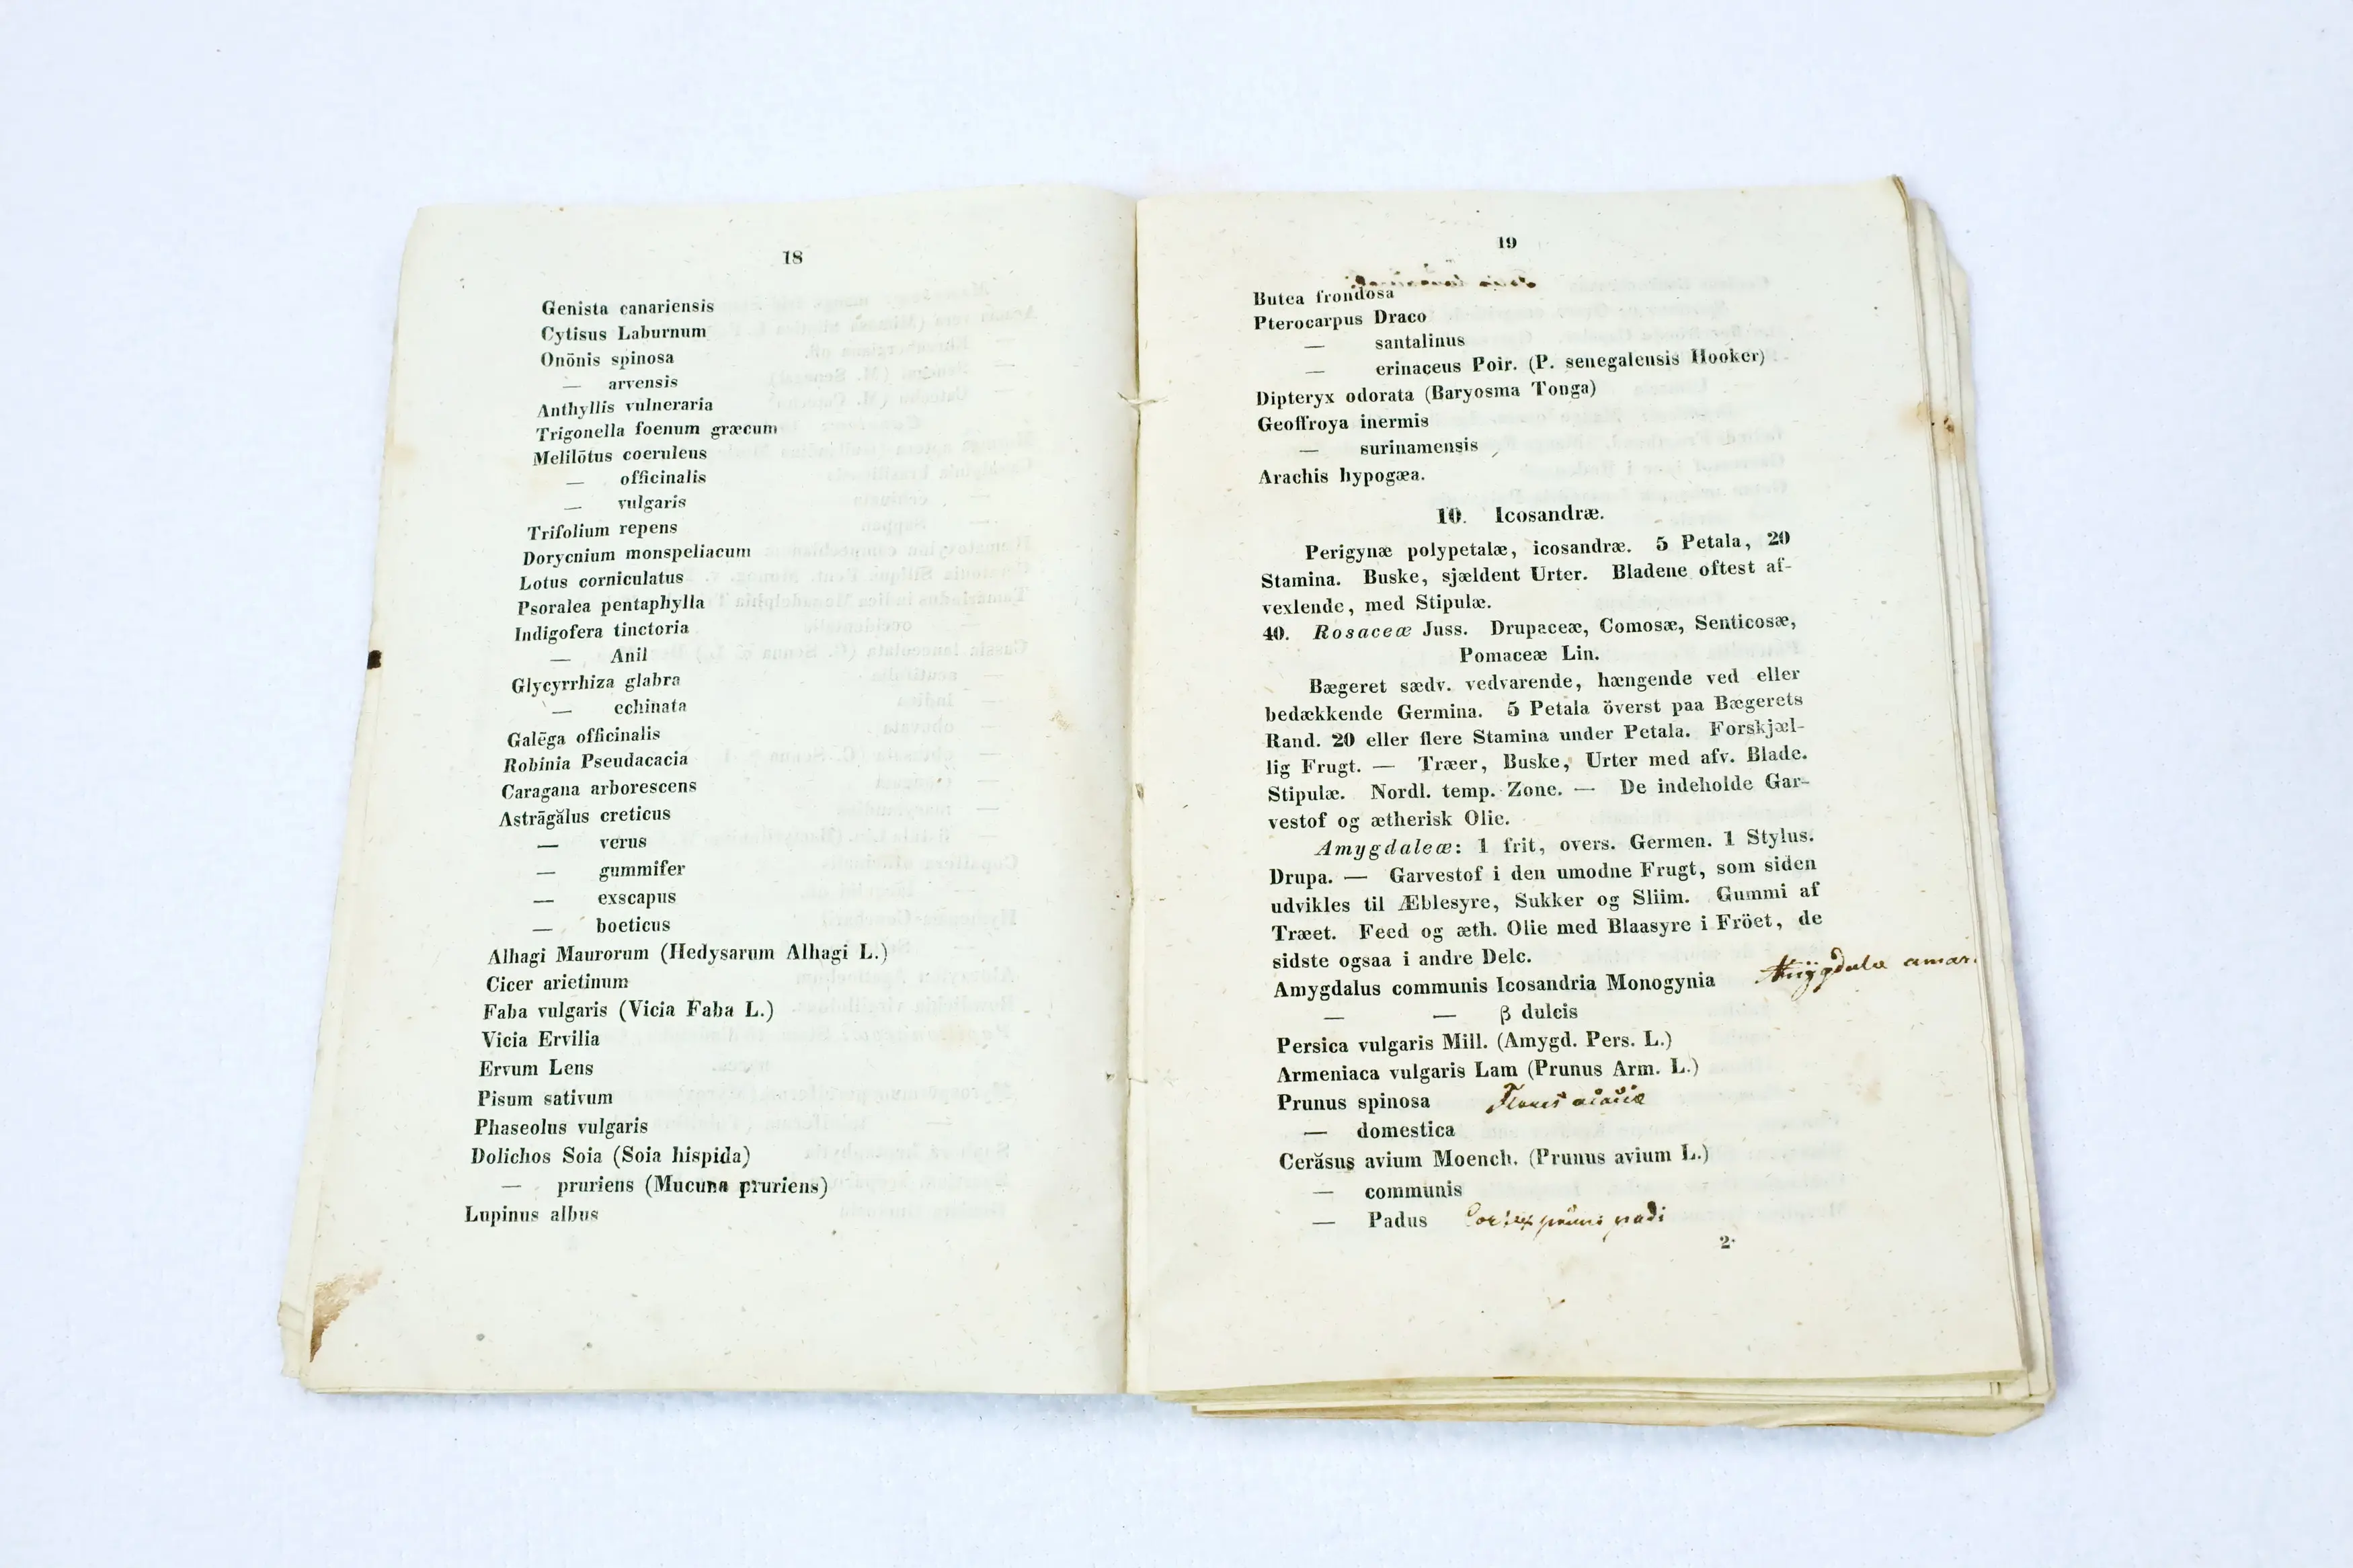 18
Genista canariensis
Cytisus Laburnum
Onōnis spinosa
— arvensis
Anthyllis vulneraria
Trigonella foenum græcum
Melilōtus coeruleus
— officinalis
— vulgaris
Trifolium repens
Dorycnium monspeliacum
Lotus corniculatus
Psoralea pentaphylla
Indigofera tinctoria
— Anil
Glycyrrhiza glabra
— echinata
Galēga officinalis
Robinia Pseudacacia
Caragana arborescens
Astrāgălus creticus
— verus
— gummifer
— exscapus
— boeticus
Alhagi Maurorum (Hedysarum Alhagi L.)
Cicer arietinum
Faba vulgaris (Vicia Faba L.)
Vicia Ervilia
Ervum Lens
Pisum sativum
Phaseolus vulgaris
Dolichos Soia (Soia hispida)
— pruriens (Mucuna pruriens)
Lupinus albus
19
Butea frondosa
Pterocarpus Draco
— santalinus
— erinaceus Poir. (P. senegalensis Hooker)
Dipteryx odorata (Baryosma Tonga)
Geoffroya inermis
— surinamensis
Arachis hypogæa.
10. Icosandræ.
Perigynæ polypetalæ, icosandræ. 5 Petala, 20
Stamina. Buske, sjældent Urter. Bladene oftest af-
vexlende, med Stipulæ.
40. Rosaceæ Juss. Drupaceæ, Comosæ, Senticosæ,
Pomaceæ Lin.
Bægeret sædv. vedvarende, hængende ved eller
bedækkende Germina. 5 Petala överst paa Bægerets
Rand. 20 eller flere Stamina under Petala. Forskjæl-
lig Frugt. — Træer, Buske, Urter med afv. Blade.
Stipulæ. Nordl. temp. Zone. — De indeholde Gar-
vestof og ætherisk Olie.
Amygdaleæ: 1 frit, overs. Germen. 1 Stylus.
Drupa. — Garvestof i den umodne Frugt, som siden
udvikles til Æblesyre, Sukker og Sliim. Gummi af
Træet. Feed og æth. Olie med Blaasyre i Fröet, de
sidste ogsaa i andre Dele.
Amygdalus communis Icosandria Monogynia Amÿgdala amar
— — β dulcis
Persica vulgaris Mill. (Amygd. Pers. L.)
Armeniaca vulgaris Lam (Prunus Arm. L.)
Prunus spinosa Flores
— domestica
Cerăsus avium Moench. (Prunus avium L.)
— communis
— Padus Cortex pruni padi
2*